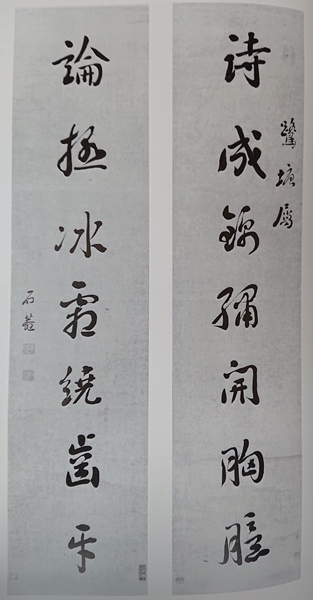 詩成錦繡開胸臆
鷺塘屬
論極冰霜繞齒牙
石菴